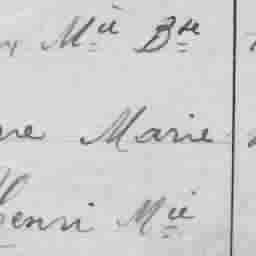 Mie Bte
ne Marie
Henri Mie